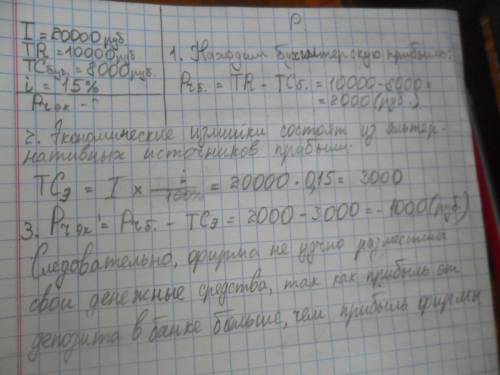 I = 20000 руб.
TR = 10000 руб.
TCбух = 8000 руб.
i = 15%
Pr эк - ?
Р
1. Находим бухгалтерскую прибыль:
Prб. = TR - TCб. = 10000 - 8000 =
= 2000 (руб.)
2. Экономические издержки состоят из альтер-
нативных источников прибыли.
TCэ = I × i/100% = 20000 · 0,15 = 3000
3. Pr эк = Prб. - TCэ = 2000 - 3000 = - 1000 (руб)
Следовательно, фирма не удачно разместила
свои денежные средства, так как прибыль от
депозита в банке больше, чем прибыль фирмы